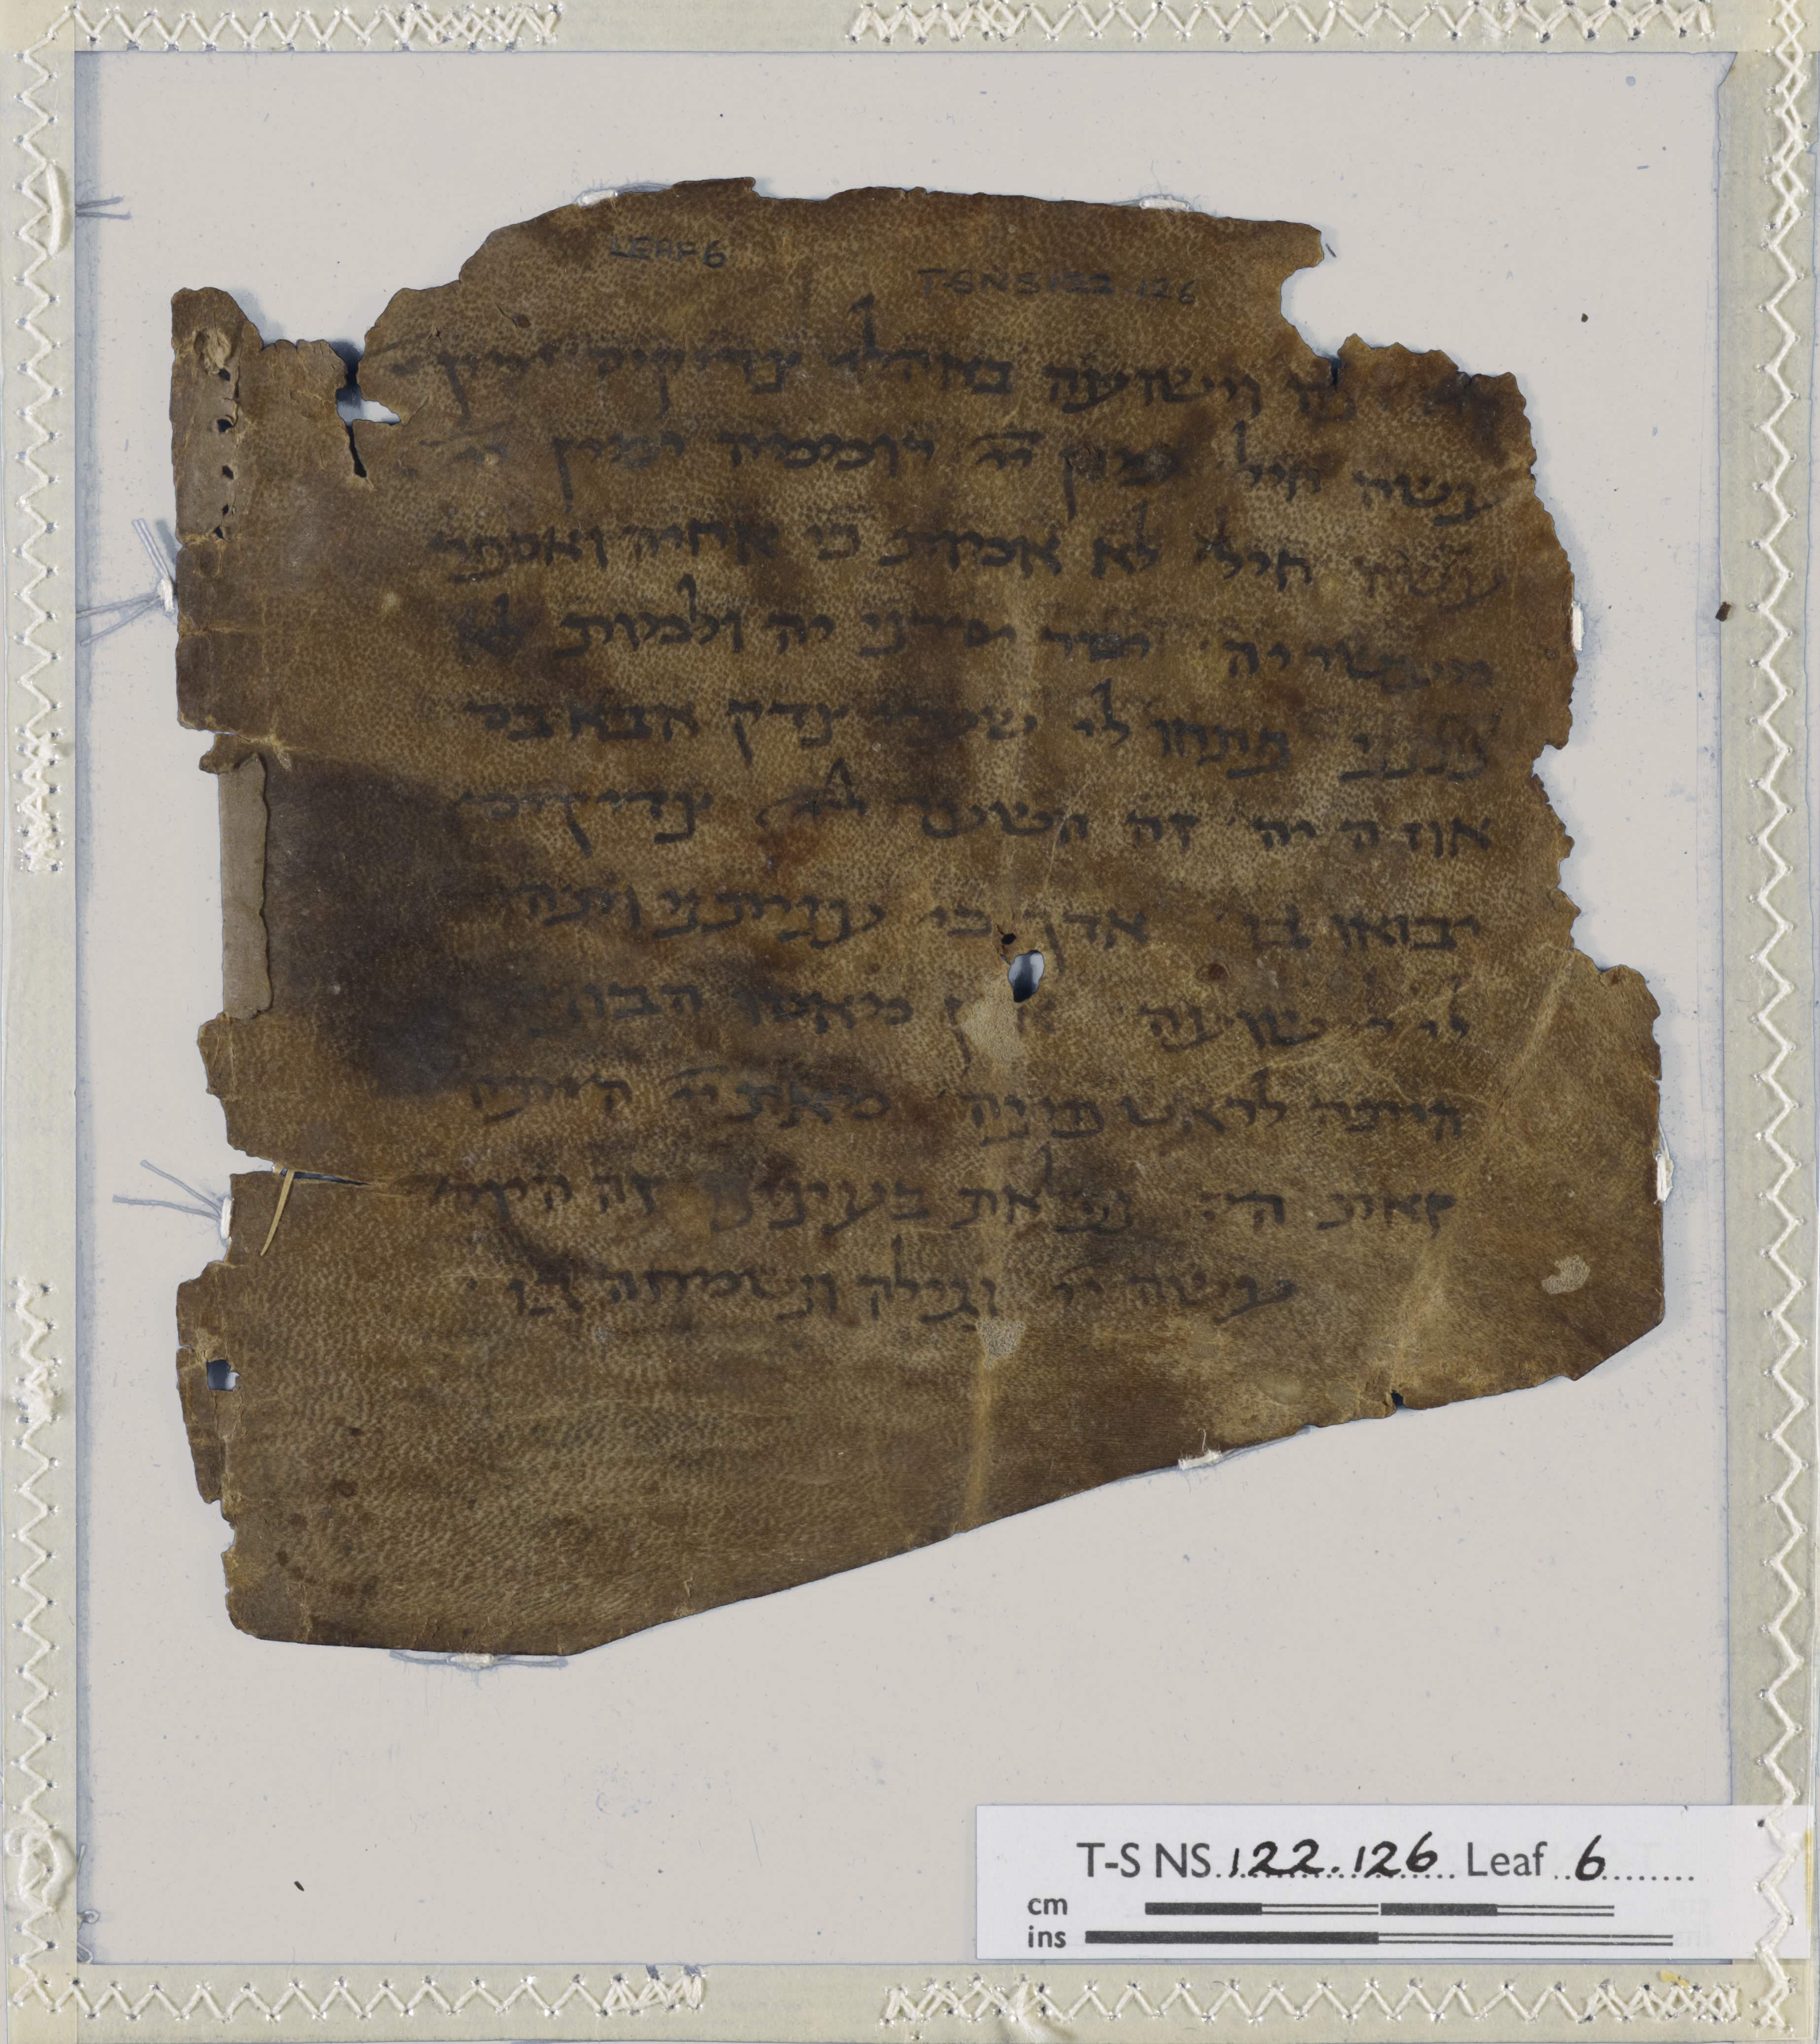 LEAF 6
T-S NS 122.126
רנה וישועה באהלי צדיקים ימין ייי
עשה חיל ימין ייי רוממה ימין ייי
עשה חיל לא אמות כי אחיה ואספר
מעשי יה יסר יסרני יה ולמות לא
נתנני פתחו לי שערי צדק אבא בם
אודה יה זה השער לייי צדיקים
יבואו בו אודך כי עניתני ותהי
לי לישועה אבן מאסו הבונים
היתה לראש פינה מאת ייי היתה
זאת היא נפלאת בעינינו זה היום
עשה ייי נגילה ונשמחה בו
T-S NS 122.126 Leaf 6
cm
ins